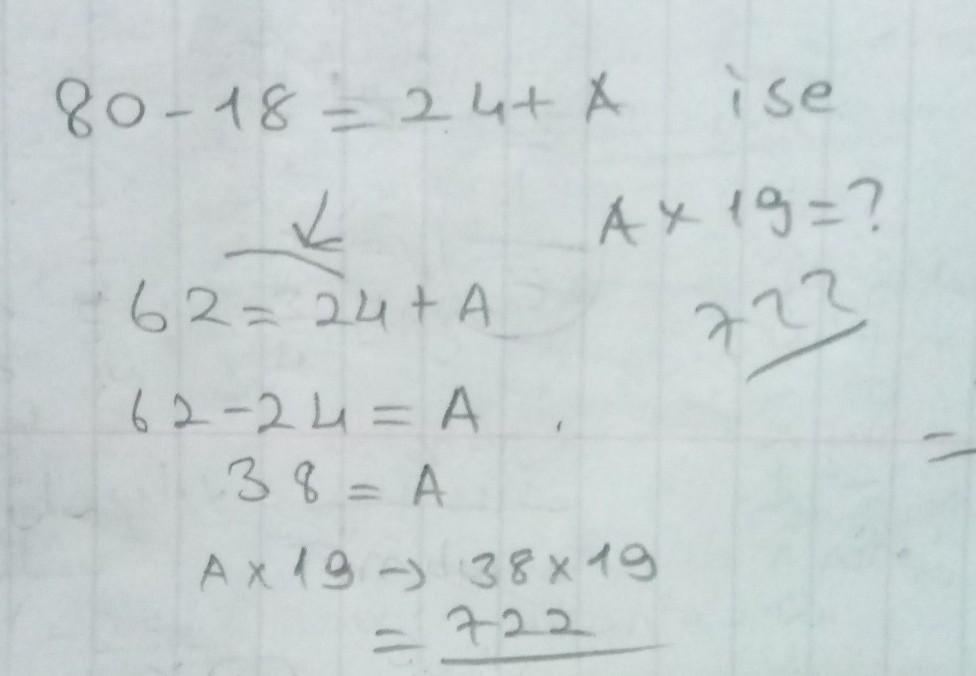 80-18=24+A ise
A×19=?
722
62=24+A
62-24=A.
38=A
A×19→38×19
=722
=